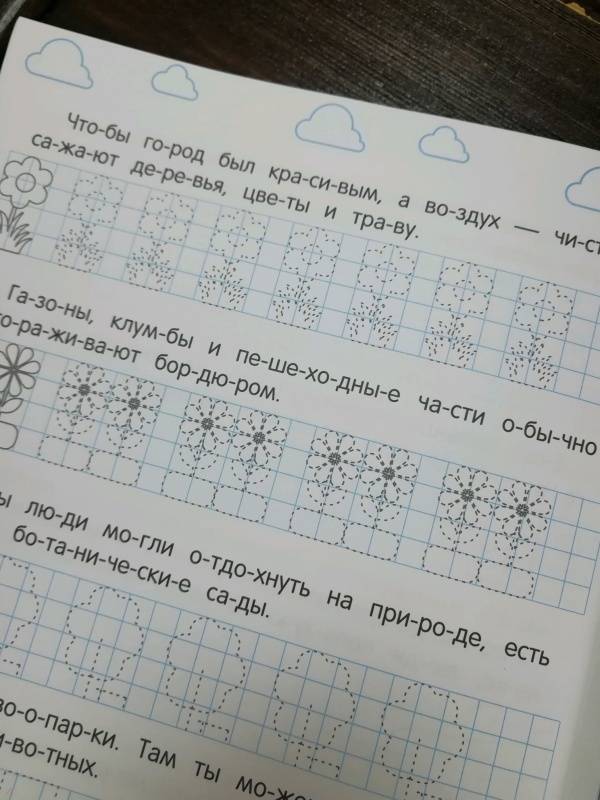 Что-бы го-род был кра-си-вым, а во-здух — чи-ст
са-жа-ют де-ре-вья, цве-ты и тра-ву.
Га-зо-ны, клум-бы и пе-ше-хо-дны-е ча-сти о-бы-чно
го-ра-жи-ва-ют бор-дю-ром.
ы лю-ди мо-гли о-тдо-хнуть на при-ро-де, есть
бо-та-ни-че-ски-е са-ды.
зо-о-пар-ки. Там ты мо-же
и-во-тных.